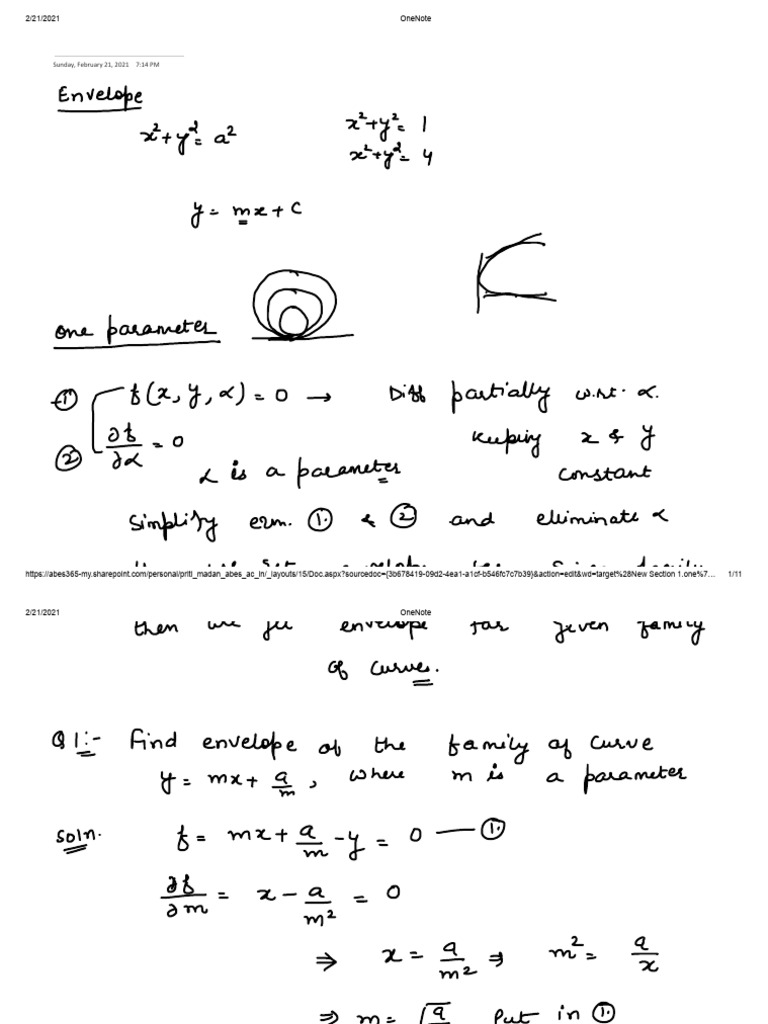 2/21/2021 OneNote
Sunday, February 21, 2021 7:14 PM
Envelope
x²+y²= a² x²+y²= 1
x²+y²= 4
y= mx+c
one parameter
① f(x, y, α)=0 → Diff partially w.r.t. α.
② ∂f/∂α =0 keeping x & y
α is a parameter constant
Simplify eqn. ① & ② and elliminate α
https://abes365-my.sharepoint.com/personal/priti_madan_abes_ac_in/_layouts/15/Doc.aspx?sourcedoc={3b678419-09d2-4ea1-a1cf-b546fc7c7b39}&action=edit&wd=target%28New Section 1.one%7… 1/11
2/21/2021 OneNote
then we get envelope for given family
of curves.
Q1:- Find envelope of the family of curve
y= mx+ a/m, where m is a parameter
Soln. f= mx+ a/m -y= 0 —①
∂f/∂m = x- a/m² = 0
⇒ x= a/m² ⇒ m²= a/x
⇒ m= Put in ①